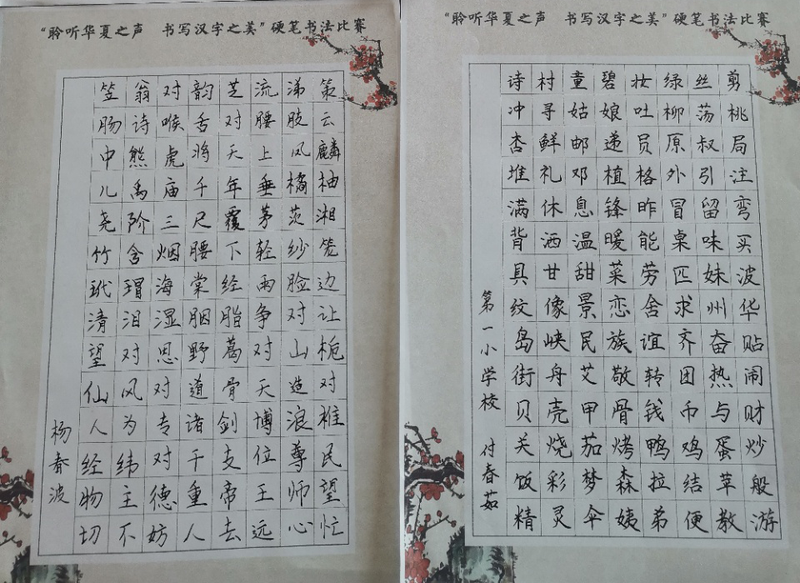 “聆听华夏之声 书写汉字之美”硬笔书法比赛
笠翁对韵芝流涕策
肠诗喉舌对腰肢云
中熊虎将天上凤麟
儿禹庙千年垂橘柚
尧阶三尺覆茅茨湘
竹含烟腰下轻纱笼
玳瑁海棠经雨脸边
清泪湿胭脂争对让
望对思野葛对山栀
仙风对道骨天造对
人为专诸剑博浪椎
经纬对干支位尊民
物主德重帝王师望
切不妨人去远心忙
杨春波
“聆听华夏之声 书写汉字之美”硬笔书法比赛
诗村童碧妆绿丝剪
冲寻姑娘吐柳荡桃
杏鲜邮递员原叔局
堆礼邓植格外引注
满休息锋昨冒留弯
背洒温暖能桌味买
具甘甜菜劳匹妹波
纹像景恋舍求州华
岛峡民族谊齐奋贴
街舟艾敬转团热闹
贝壳甲骨钱币与财
关烧茄烤鸭鸡蛋炒
饭彩梦森拉结苹般
精灵伞姨弟便教游
第一小学校 付春茹